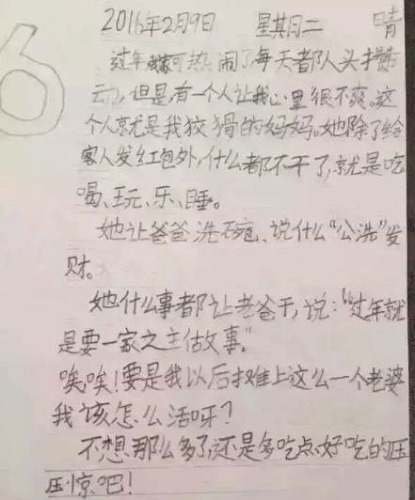 2016年2月9日 星期二 晴
过年我家可热闹了每天都人头攒
动，但是有一个人让我心里很不爽。这
个人就是我狡猾的妈妈。她除了给
客人发红包外，什么都不干了，就是吃
喝、玩、乐、睡。
她让爸爸洗碗、说什么“公洗”发
财。
她什么事都让老爸干，说：“过年就
是要一家之主做事。”
唉，唉！要是我以后摊上这么一个老婆
我该怎么活呀？
不想那么多了，还是多吃点好吃的压
压惊吧！